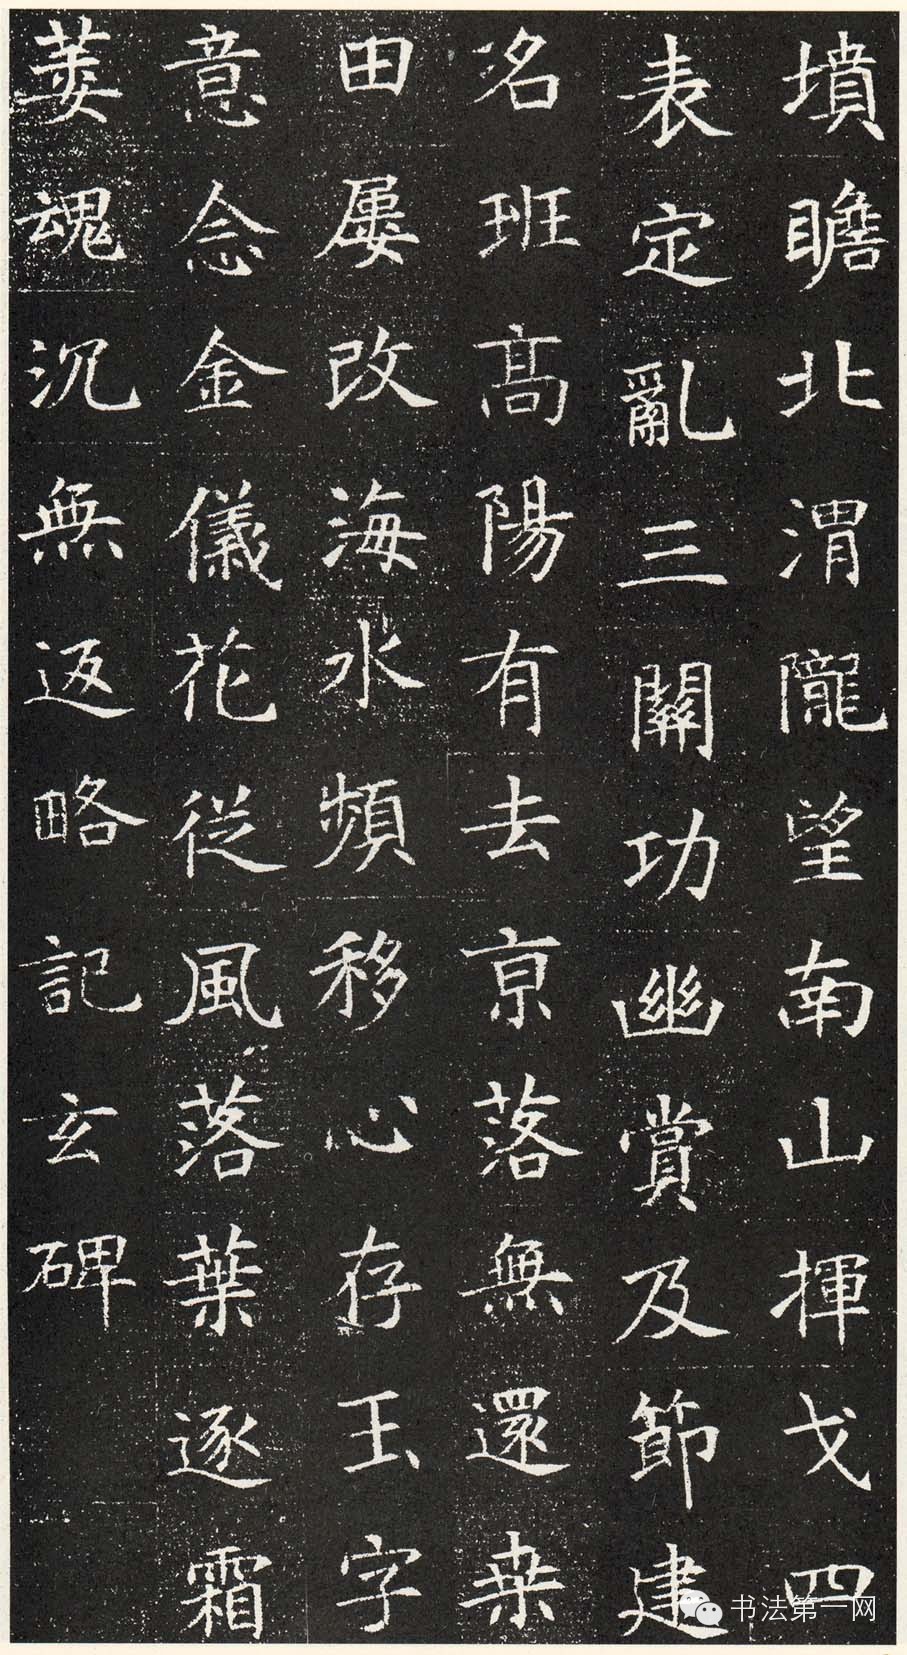 墳瞻北渭隴望南山揮戈四
表定亂三關功幽賞及節建
名班高陽有去京落無還桒
田屢改海水頻移心存玉字
意念金儀花從風落葉逐霜
萎魂沉無返略記玄碑
书法第一网